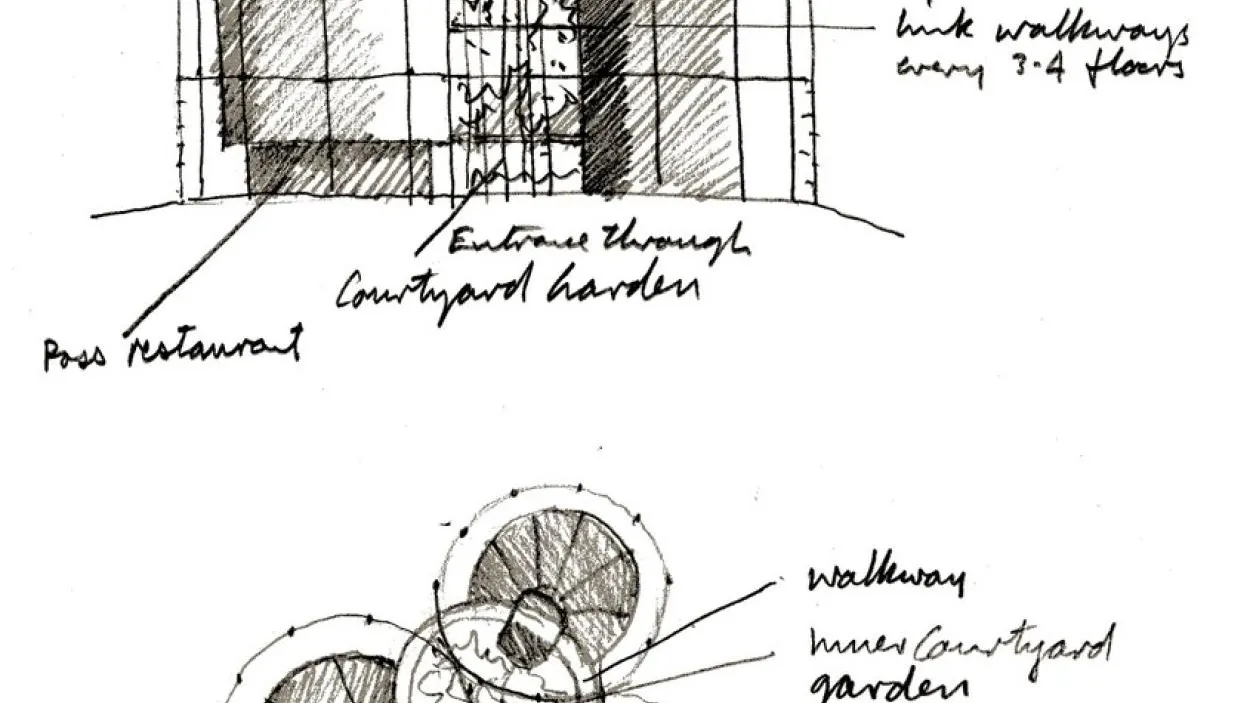 link walkways
every 3-4 floors
Entrance through
Courtyard Garden
Poss restaurant
walkway
Inner Courtyard
garden